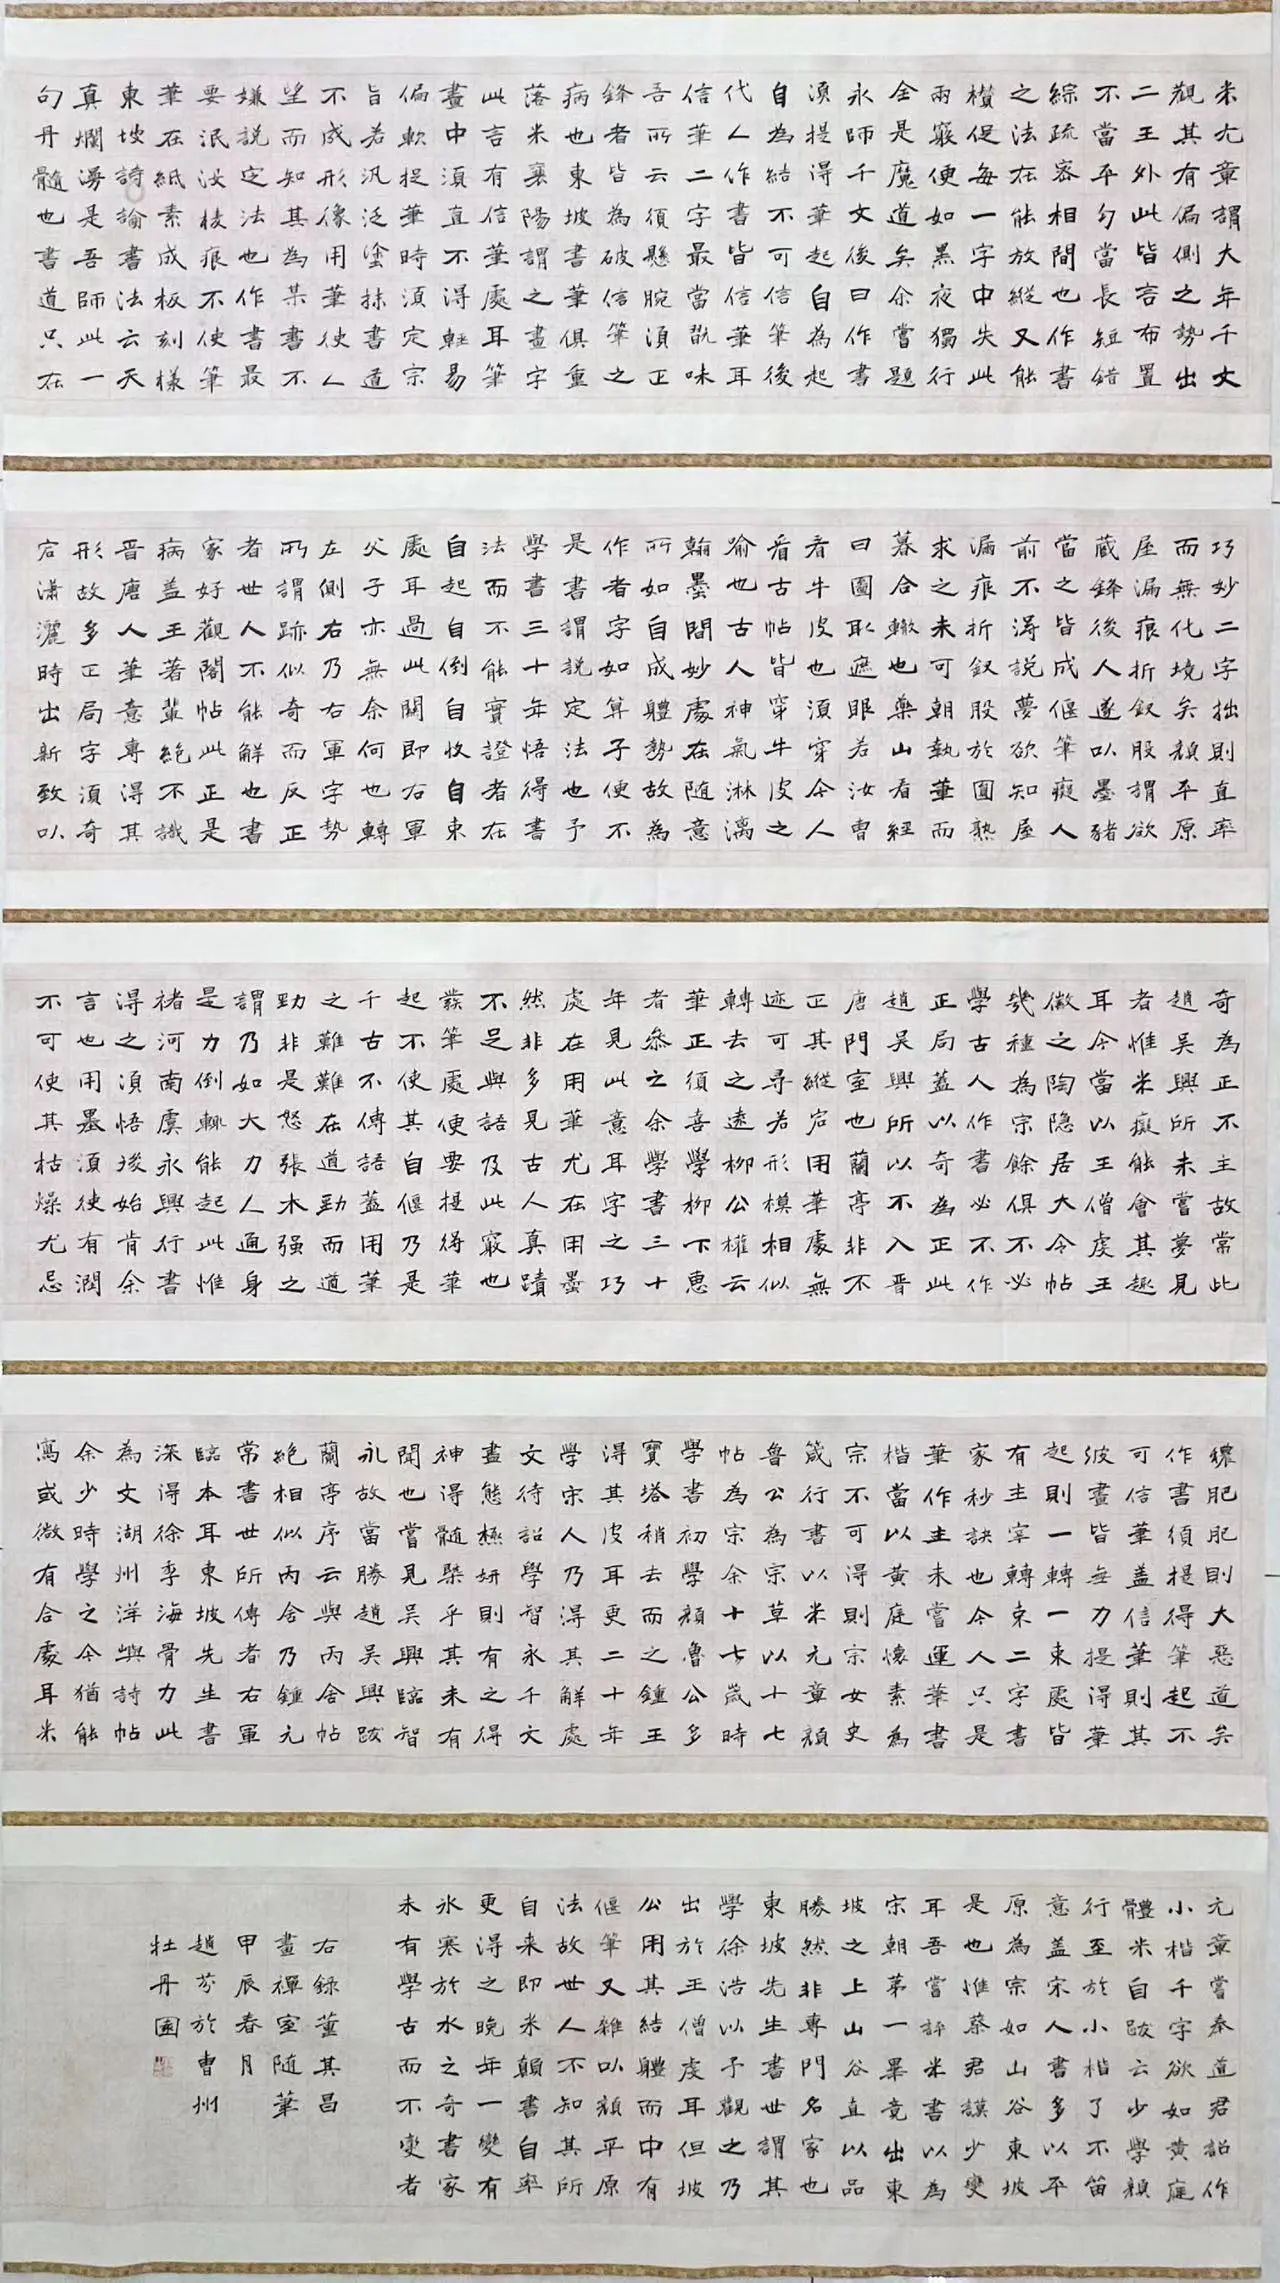 米元章謂大年千文
觀其有偏側之勢出
二王外此皆言布置
不當平勻當長短錯
綜疏密相間也作書
之法在能放縱又能
攢促每一字中失此
兩竅便如黑夜獨行
全是魔道矣余嘗題
永師千文後曰作書
須提得筆起自為起
自為結不可信筆後
代人作書皆信筆耳
信筆二字最當翫味
吾所云須懸腕須正
鋒者皆為破信筆之
病也東坡書筆俱重
落米襄陽謂之畫字
此言有信筆處耳筆
畫中須直不得輕易
偏軟捉筆時須定宗
旨若汎泛塗抹書道
不成形像用筆使人
望而知其為某書不
嫌說定法也作書最
要泯沒棱痕不使筆
筆在紙素成板刻樣
東坡詩論書法云天
真爛漫是吾師此一
句丹髓也書道只在
巧妙二字拙則直率
而無化境矣顏平原
屋漏痕折釵股謂欲
藏鋒後人遂以墨豬
當之皆成偃筆癡人
前不得說夢欲知屋
漏痕折釵股於圓熟
求之未可朝執筆而
暮合轍也藥山看經
曰圖取遮眼若汝曹
看牛皮也須穿今人
看古帖皆穿牛皮之
喻也古人神氣淋漓
翰墨間妙處在隨意
所如自成體勢故為
作者字如算子便不
是書謂說定法也予
學書三十年悟得書
法而不能實證者在
自起自倒自收自束
處耳過此關即右軍
父子亦無余何也轉
左側右乃右軍字勢
所謂跡似奇而反正
者世人不能解也書
家好觀閣帖此正是
病蓋王著輩絕不識
晉唐人筆意專得其
形故多正局字須奇
宕瀟灑時出新致以
奇為正不主故常此
趙吳興所未嘗夢見
者惟米癡能會其趣
耳今當以王僧虔王
徽之陶隱居大令帖
幾種為宗餘俱不必
學古人作書必不作
正局蓋以奇為正此
趙吳興所以不入晉
唐門室也蘭亭非不
正其縱宕用筆處無
迹可尋若形模相似
轉去之遠柳公權云
筆正須喜學柳下惠
者參之余學書三十
年見此意耳字之巧
處在用筆尤在用墨
然非多見古人真蹟
不足與語及此竅也
發筆處便要提得筆
起不使其自偃乃是
千古不傳語蓋用筆
之難難在遒勁而遒
勁非是怒張木强之
謂乃如大力人通身
是力倒輒能起此惟
褚河南虞永興行書
得之須悟後始肯余
言也用墨須使有潤
不可使其枯燥尤忌
穠肥肥則大惡道矣
作書須提得筆起不
可信筆蓋信筆則其
波畫皆無力提得筆
起則一轉一束處皆
有主宰轉束二字書
家秒訣也今人只是
筆作主未嘗運筆書
楷當以黃庭懷素為
宗不可得則宗女史
箴行書以米元章顏
魯公為宗草以十七
帖為宗余十七歲時
學書初學顏魯公多
寶塔稍去而之鍾王
得其皮耳更二十年
學宋人乃得其解處
文待詔學智永千文
畫態極妍則有之得
神得髓槩乎其未有
聞也嘗見吳興臨智
永故當勝趙吳興跋
蘭亭序云與丙舍帖
絕相似丙舍乃鍾元
常書世所傳者右軍
臨本耳東坡先生書
深得徐季海骨力此
為文湖州洋嶼詩帖
余少時學之今猶能
寫或微有合處耳米
元章嘗奉道君詔作
小楷千字欲如黃庭
體米自跋云少學顏
行至於小楷了不留
意蓋宋人書多以平
原為宗如山谷東坡
是也惟蔡君謨少變
耳吾嘗評米書以為
宋朝第一畢竟出東
坡之上山谷直以品
勝然非專門名家也
東坡先生書世謂其
學徐浩以予觀之乃
出於王僧虔耳但坡
公用其結體而中有
偃筆又雜以顏平原
法故世人不知其所
自來即米顛書自率
更得之晚年一變有
冰寒於水之奇書家
未有學古而不變者
右錄董其昌
畫禪室隨筆
甲辰春月
趙芬於曹州
牡丹園